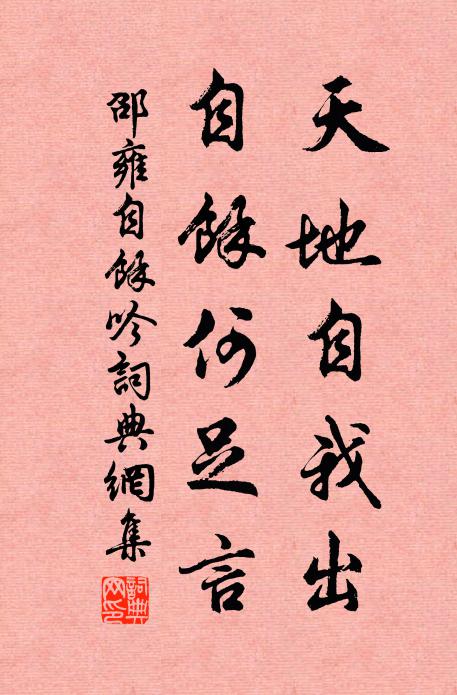 天地自我出
自餘何足言
邵雍自餘吟詞典網集
詞典網印